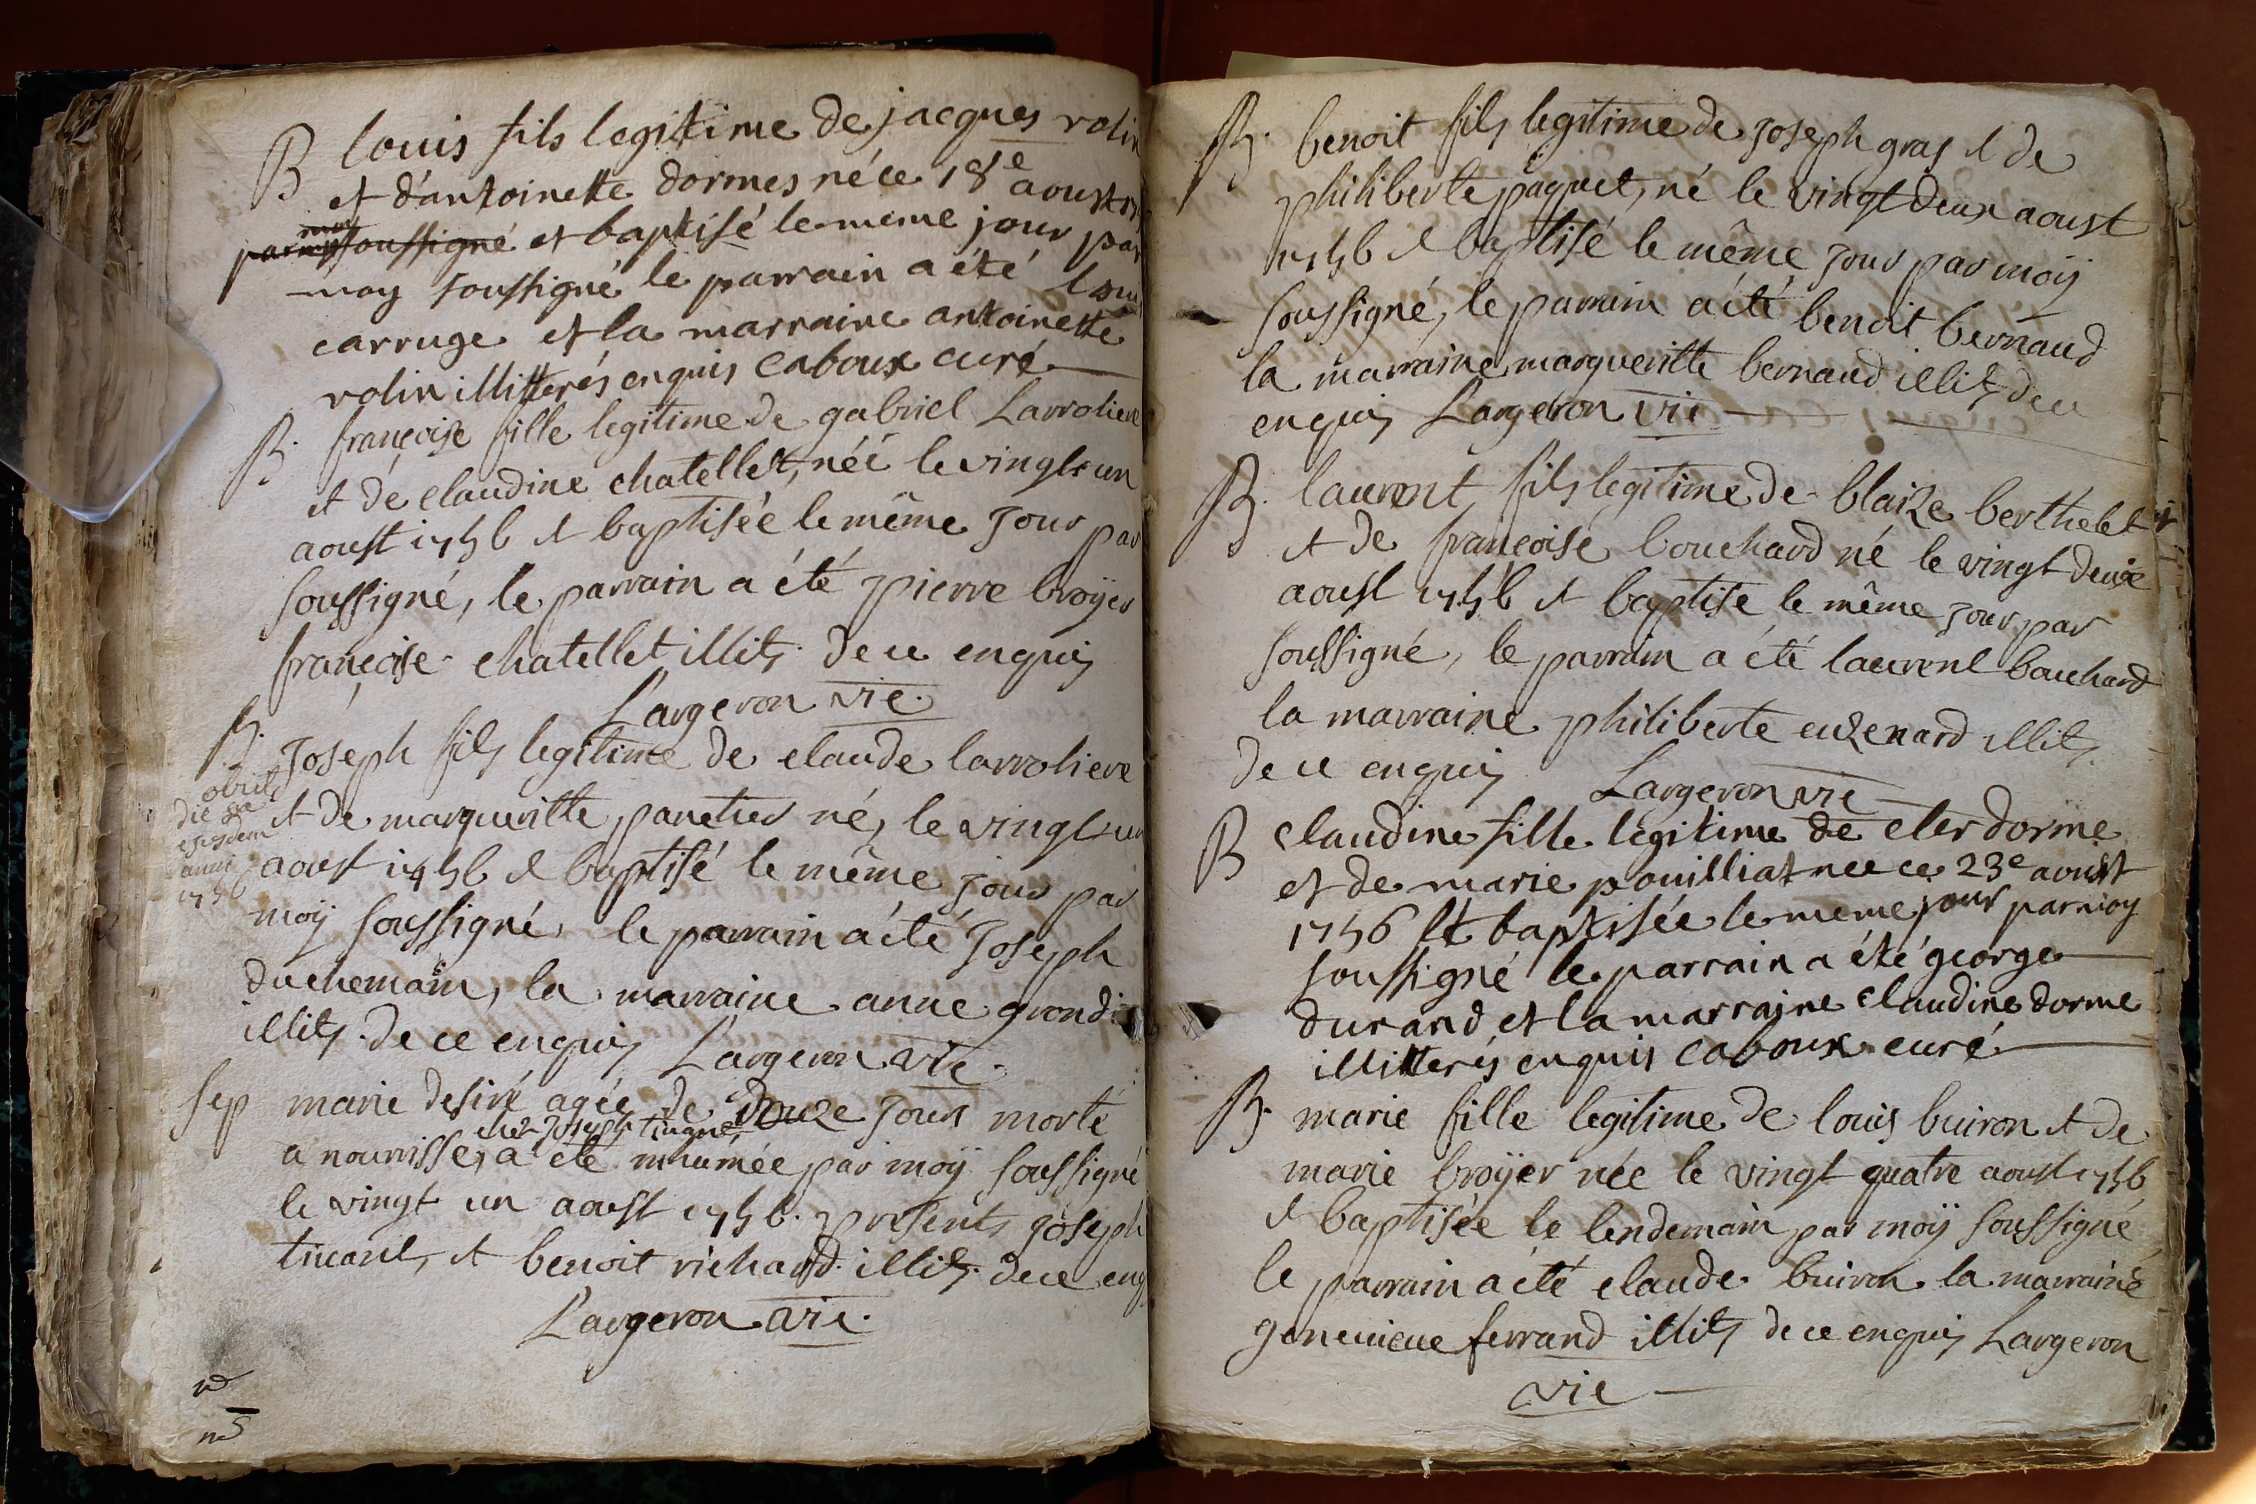 B louis fils legitime de jacques rolin
et d'antoinette dormes né ce 18e aoust
par moy soussigné et baptisé le meme jour par
moy soussigné le parrain a été
carruge et la marraine antoinette
rolin illitterés enquis caboux curé
B. françoise fille legitime de gabriel Larroliere
et de claudine chatellet, née le vingt un
aoust 1756 et baptisée le même jour par
soussigné, le parrain a été pierre broÿer
françoise chatellet illits. de ce enquis
Largeron vic.
B. Joseph fils legitime de claude larroliere
obiit
die
ejusdem
anni
1756
et de margueritte panetier né, le vingt un
aoust 1756 et baptisé le même jour par
moÿ soussigné, le parrain a été Joseph
duchemain, la marraine anne
illits. de ce enquis Largeron vic.
Sep marie desiré agée de douze jours morte
chez Joseph
a nourisse, a été inhumée par moÿ soussigné
le vingt un aoust 1756. presents joseph
et benoit richard. illits. de ce enq
Largeron vic.
B. benoit fils legitime de Joseph gras et de
philiberte paquet, né le vingt deux aoust
1756 et baptisé le même jour par moÿ
soussigné, le parrain a été benoit bernaud
la marraine margueritte bernaud illits de ce
enquis Largeron vic
B. laurent fils legitime de blaize berthelet
et de françoise bouchard né le vingt deux
aoust 1756 et baptisé le même jour par
soussigné, le parrain a été laurent bouchard
la marraine philiberte illits.
de ce enquis Largeron vic
B claudine fille legitime de cler dorme
et de marie pouilliat nee ce 23e aoust
1756 et baptisée le meme jour par moy
soussigné le parrain a été george
durand et la marraine claudine dorme
illitterés enquis caboux curé
B. marie fille legitime de louis buiron et de
marie broÿer née le vingt quatre aoust 1756
et baptisée le lendemain par moÿ soussigné
le parrain a été claude buiron la marraine
genevieve ferrand illits de ce enquis Largeron
vic